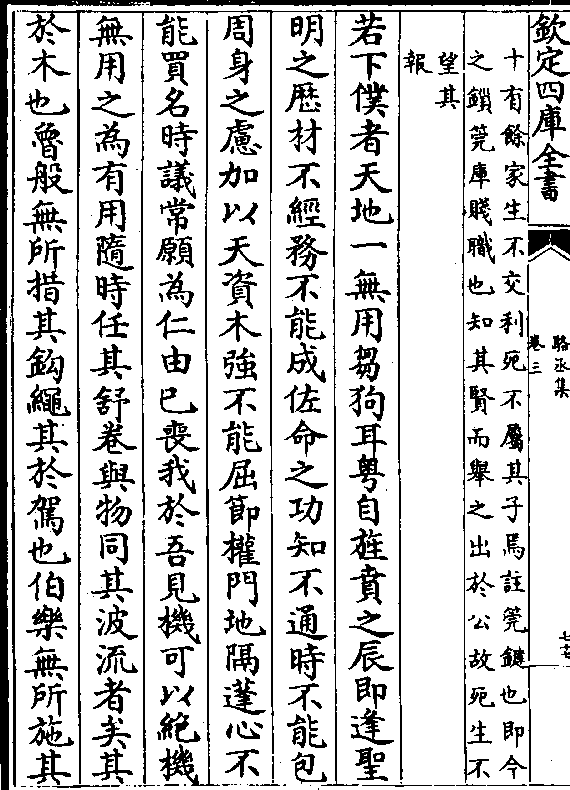 欽定四庫全書
駱丞集
卷三
十有餘家生不交利死不屬其子焉註筦鍵也即今
之鎖筦庫賤職也知其賢而舉之出於公故死生不
望其
報
若下僕者天地一無用芻狗耳粤自旌賁之辰即逢聖
明之厯材不經務不能成佐命之功知不通時不能包
周身之慮加以天資木強不能屈節權門地隔蓬心不
能買名時議常願為仁由已喪我於吾見機可以絶機
無用之為有用隨時任其舒卷與物同其波流者矣其
於木也魯般無所措其鈎繩其於駕也伯樂無所施其